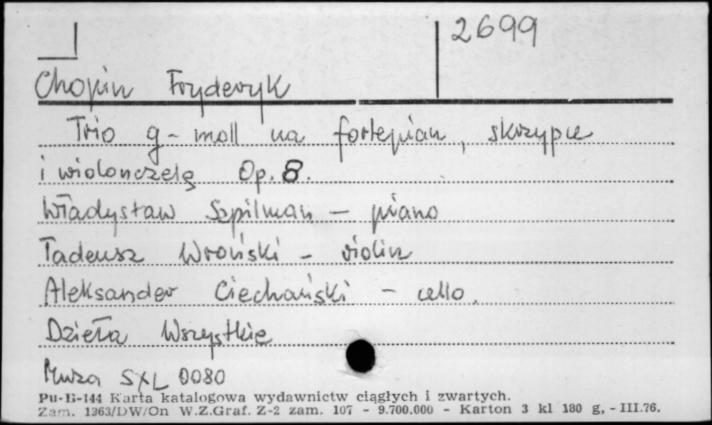 2699
Chopin Fryderyk
Trio g-moll na fortepian, skrzypce
i wiolonczelę Op. 8.
Władysław Szpilman - piano
Tadeusz Wroński - violin
Aleksander Ciechański - cello.
Dzieła Wszystkie
Muza SXL 0080
Pu-B-144 Karta katalogowa wydawnictw ciągłych i zwartych.
Zam. 1363/DW/On W.Z.Graf. Z-2 zam. 107 - 9.700.000 - Karton 3 kl 180 g, - III.76.